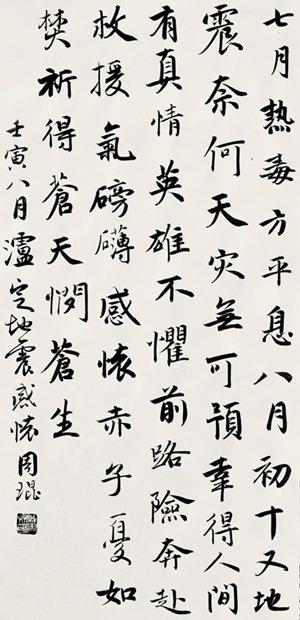 七月熱毒方平息八月初十又地
震奈何天灾無可預幸得人間
有真情英雄不懼前路險奔赴
救援氣磅礴感懷赤子憂如
焚祈得蒼天憫蒼生
壬寅八月瀘定地震感懷周琨